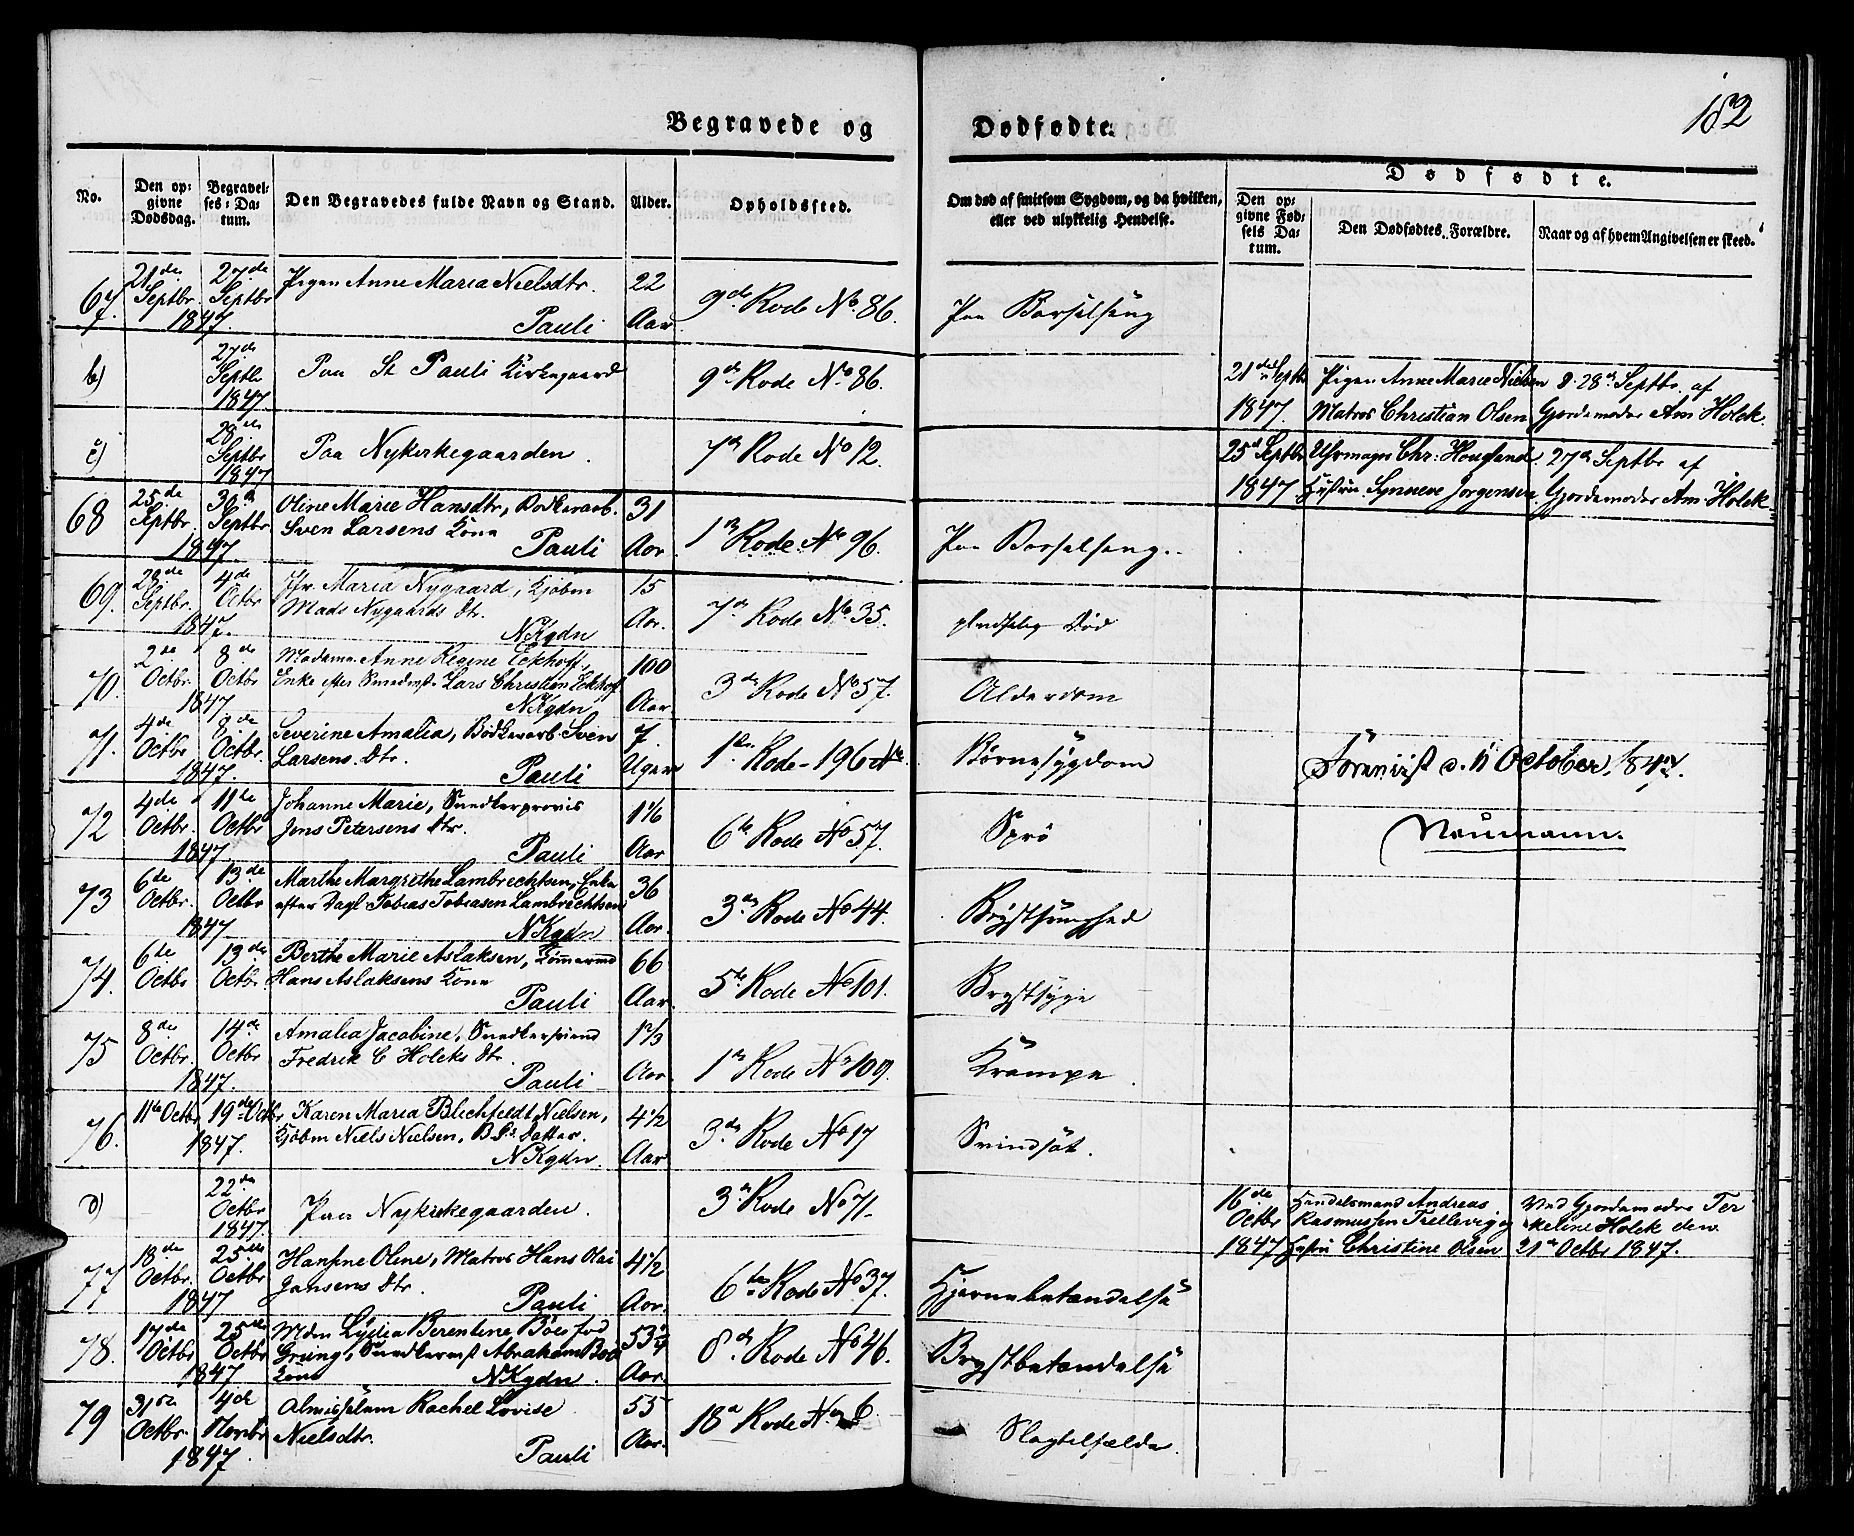 182
Begravede og Dødfødte.
No.
Den opgivne Dødsdag.
Begravelses-Datum.
Den Begravedes fulde Navn og Stand.
Alder.
Opholdssted.
Om død af smitsom Sygdom, og da hvilken, eller ved ulykkelig Hendelse.
Dødfødte.
Den opgivne Fødsels Datum.
Den Dødfødtes Forældre.
Naar og af hvem Angivelsen er skeed.
67. 21de Septbr. 27de Septbr 1847. Pigen Anne Maria Nielsdtr. Pauli 22 Aar 9de Rode No. 86. Paa Barselseng
b) 27de Septbr 1847. Paa St Pauli Kirkegaard 9de Rode No 86. 21de Septbr 1847. Pigen Anne Marie Nielsen 28de Septbr. af
Matros Christian Olsen Gjordemoder Am. Holck.
c) 28de Septbr 1847 Paa Nykirkegaarden. 7de Rode No 12. 25d Septbr 1847 Uhrmager Chr: Hougland 27de Septbr af
Hustru Synneve Jørgensen Gjordemoder Am. Holck
68 25de Septbr. 30d Septbr 1847. Oline Marie Hansdtr, Bødkerarb.
Sven Larsens Kone Pauli 31 Aar. 1ste Rode No 96. Paa Barselseng.
69. 28de Septbr. 4de Octbr 1847. Jfr Maria Nygaard, Kjøbm
Mads Nygaards Dtr. NKgdn 15 Aar. 7de Rode No 35. pludselig Død
70. 2de Octbr. 8de Octbr 1847 Madame Anne Regine Eckhoff,
Enke efter Lars Christian Eckhoff NKgdn 100 Aar. 3de Rode No 57. Alderdom
71. 4de Octbr 8de Octbr. 1847. Severine Amalia, Bødkerarb. Sven
Larsens Dtr. Pauli 7 Uger 1ste Rode - 196 Børnesygdom Forevist d. 11 October 1847.
72 4de Octbr. 11te Octbr 1847 Johanne Marie, Snedkersvend
Jens Petersens Dtr. Pauli 1 1/6 Aar 6te Rode No 57. Neumann.
73 6te Octbr. 13de Octbr 1847 Marthe Margrethe Lambrechtsen, Enke
efter Dagl Tobias Tobiasen Lambrechtsen NKgdn 36 Aar. 3de Rode No 44.
74. 6te Octbr 13de Octbr. Berthe Marie Aslaksen, Tømermd
Hans Aslaksens Kone Pauli 66 Aar. 5te Rode No 101. Brystsyge
75 8de Octbr. 14de Octbr 1847. Amalia Jacobine, Snedkersvend
Fredrik C Holcks Dtr. Pauli 1 2/3 Aar. 1ste Rode No 109. Krampe.
76. 11te Octbr 19de Octbr 1847. Karen Maria Blechfeldt Nielsen,
Kjøbm Niels Nielsen, Datter. NKgdn. 4 1/2 Aar 3de Rode No 17 Svindsot.
d) 22de Octbr 1847. Paa Nykirkegaarden. 3de Rode No 71. 16de Octbr 1847 Handelsmand Andreas Ved Gjordemoder Ter-
Rasmussen Trellevig og keline Holck den
Hustru Christine Olsen 21de Octbr 1847.
77 18de Octbr. 25de Octbr 1847 Hansine Oline, Matros Hans Olai
Jansens Dtr. Pauli 4 1/2 Aar. 6te Rode No 37. Hjernebetændelse
78. 17de Octbr 25de Octbr 1847 Mdm Lydia Berentine Bøe, fød
Grung, Snedkermst Abraham Bøe
Kone NKgdn. 53 3/4 Aar. 8de Rode No 46. Brystbetændelse
79 31te Octbr. 4de Novbr 1847. Almisselem Rachel Lovise
Nielsdtr. Pauli 55 Aar. 18de Rode No 6. Slagtilfælde.